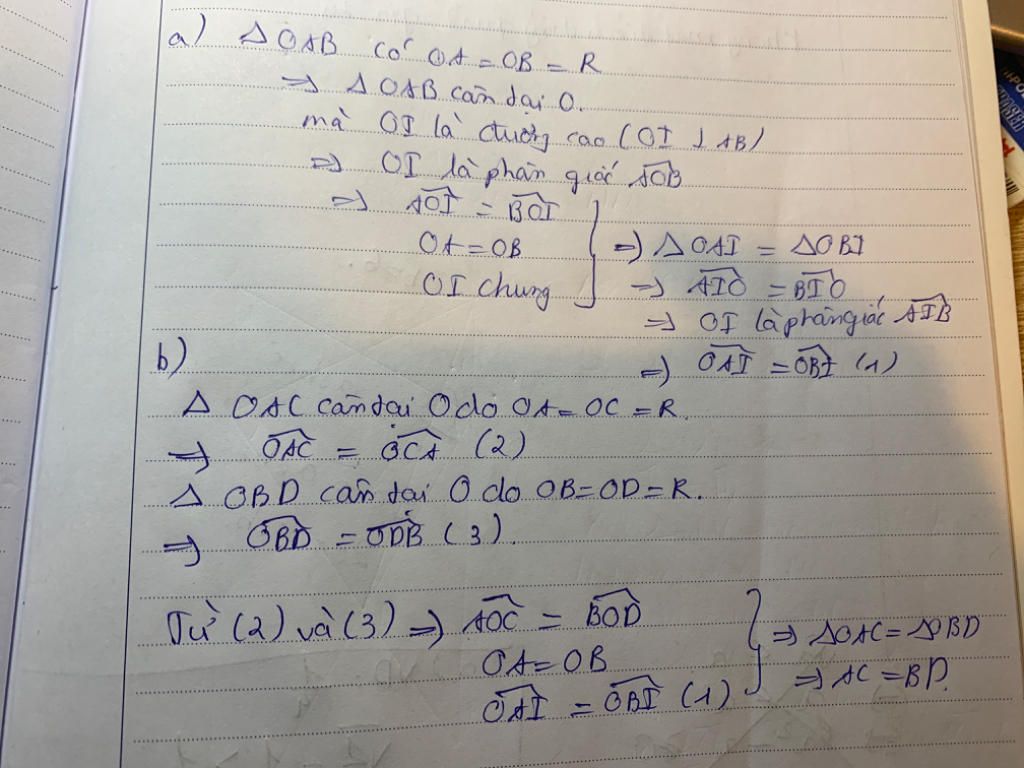 a) Δ OAB có OA = OB = R
=> Δ OAB cân tại O.
mà OI là đường cao (OI ⊥ AB)
=> OI là phân giác $\widehat{AOB}$
=> $\widehat{AOI}$ = $\widehat{BOI}$
OA = OB
OI chung
=> Δ OAI = Δ OBI
=> $\widehat{AIO}$ = $\widehat{BIO}$
=> OI là phân giác $\widehat{AIB}$
=> $\widehat{OAI}$ = $\widehat{OBI}$ (1)
b)
Δ OAC cân tại O do OA = OC = R.
=> $\widehat{OAC}$ = $\widehat{OCA}$ (2)
Δ OBD cân tại O do OB = OD = R.
=> $\widehat{OBD}$ = $\widehat{ODB}$ (3).
Từ (2) và (3) => $\widehat{AOC}$ = $\widehat{BOD}$
OA = OB
$\widehat{OAI}$ = $\widehat{OBI}$ (1)
=> ΔOAC = ΔOBD
=> AC = BD.